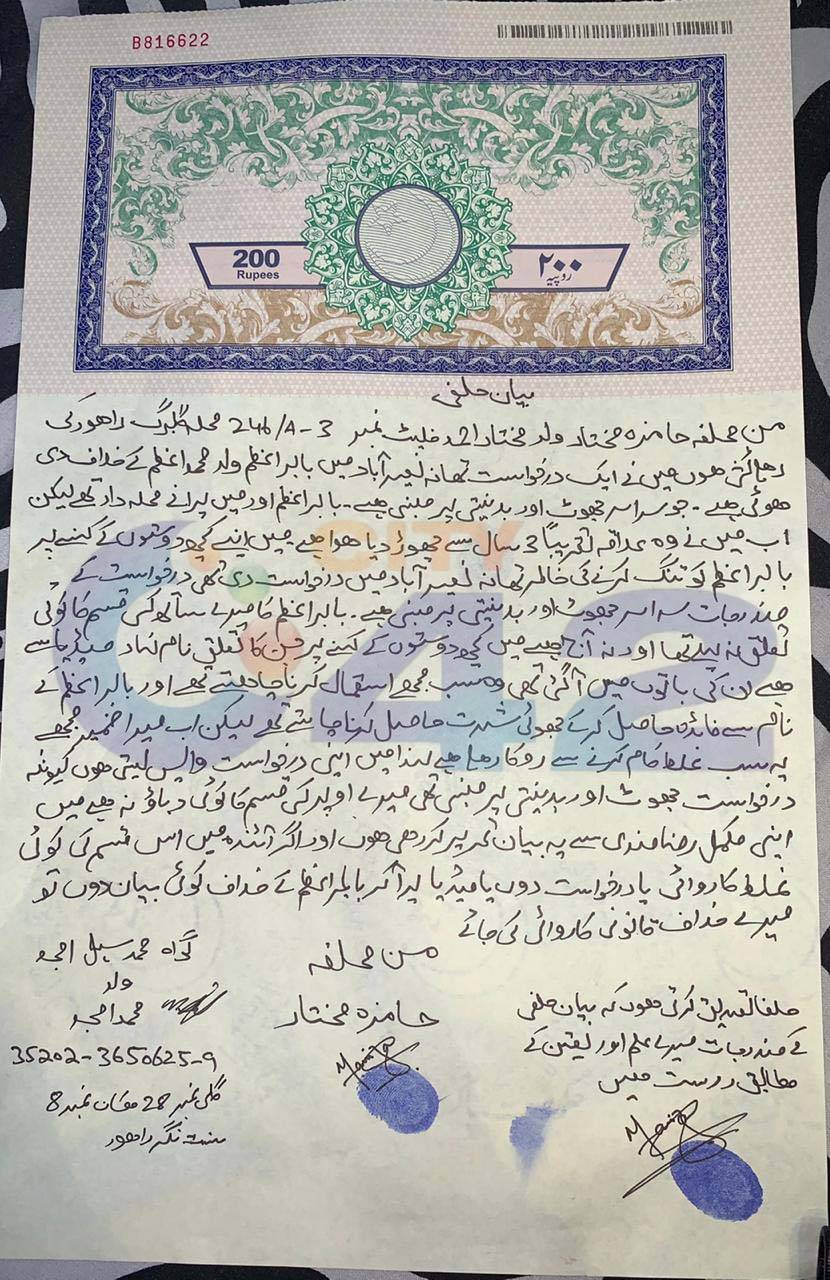 B816622
200
Rupees
۲۰۰
روپیہ
بیان حلفی
من محلفہ حامزہ مختار ولد مختار احمد فلیٹ نمبر 3-A/246 محلہ گلبرگ لاھور کی
رھائشی ھوں میں نے ایک درخواست تھانہ نصیر آباد میں بابر اعظم ولد محمد اعظم کے خلاف دی
ھوئی ھے ۔ جو سراسر جھوٹ اور بدنیتی پر مبنی ھے ۔ بابر اعظم اور میں پرانے محلہ دار تھے لیکن
اب میں نے وہ علاقہ تقریباً 3 سال سے چھوڑ دیا ھوا ھے میں اپنے کچھ دوستوں کے کہنے پر
بابر اعظم کو تنگ کرنے کی خاطر تھانہ نصیر آباد میں درخواست دی تھی درخواست کے
مندرجات سراسر جھوٹ اور بدنیتی پر مبنی ھے ۔ بابر اعظم کا میرے ساتھ کسی قسم کا کوئی
تعلق نہ پہلے تھا اور نہ آج ھے میں کچھ دوستوں کے کہنے پر جن کا تعلق نام نہاد میڈیا سے
ھے ان کی باتوں میں آ گئی تھی وہ سب مجھے استعمال کرنا چاھتے تھے اور بابر اعظم کے
نام سے فائدہ حاصل کر کے جھوٹی شہرت حاصل کرنا چاہتے تھے لیکن اب میرا ضمیر مجھے
یہ سب غلط کام کرنے سے روک رھا ھے لہذا میں اپنی درخواست واپس لیتی ھوں کیونکہ
درخواست جھوٹ اور بدنیتی پر مبنی تھی میرے اوپر کسی قسم کا کوئی دباؤ نہ ھے میں
اپنی مکمل رضامندی سے یہ بیان تحریر کر رھی ھوں اور اگر آئندہ میں اس قسم کی کوئی
غلط کاروائی یا درخواست دوں یا میڈیا پر آ کر بابر اعظم کے خلاف کوئی بیان دوں تو
میرے خلاف قانونی کاروائی کی جائے
من محلفہ
حامزہ مختار
گواہ محمد سہیل امجد
ولد
محمد امجد
35202-3650625-9
گلی نمبر 28 مکان نمبر 8
سنت نگر لاھور
حلفاً تصدیق کرتی ھوں کہ بیان حلفی
کے مندرجات میرے علم اور یقین کے
مطابق درست ھیں
CITY
42